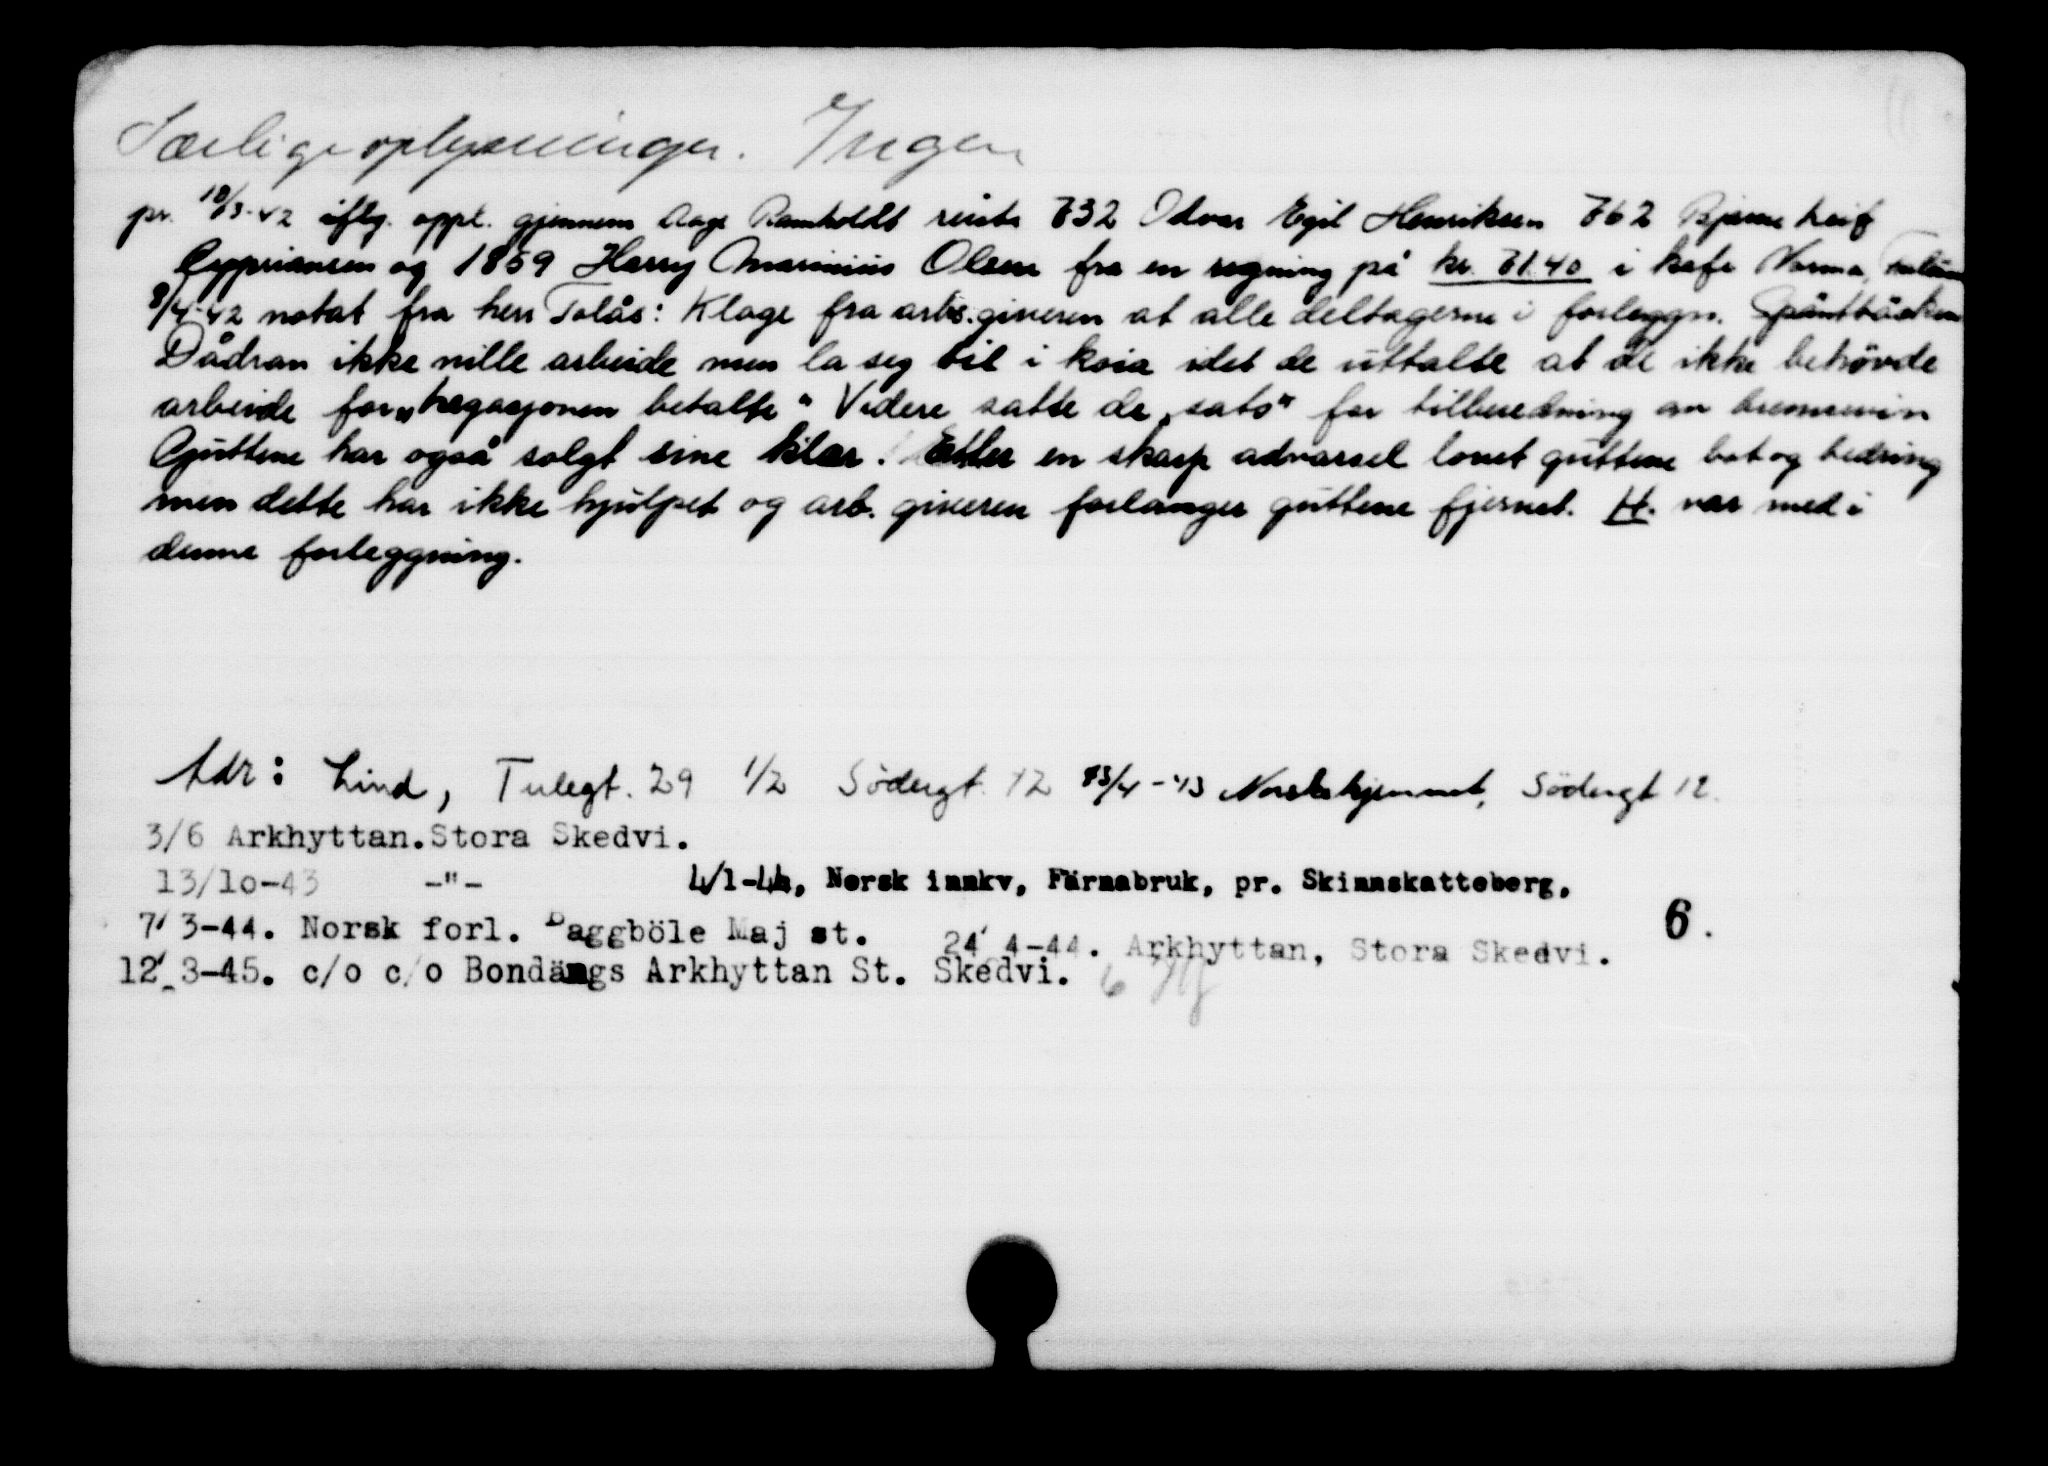 Særlige oplysninger. Ingen
pr. 18/3-42 iflg. oppt. gjennem Aage Ramholdt reiste 732 Odvar Egil Henriksen 762 Bjarne Leif
Cyprianssen og 1859 Harry Marinius Olsen fra en regning på kr. 71.40 i kafe Norma, Falun
8/4-42 notat fra herr Tolås: Klage fra arb.giveren at alle deltagerne i forleggn. Spántbäcken
Dådran ikke ville arbeide men la seg til i koia idet de uttalte at de ikke behövde
arbeide for „legasjonen betalte" Videre satte de „sats" for tilberedning av brennevin
Guttene har også solgt sine klær. Etter en skarp advarsel lovet guttene bot og bedring
men dette har ikke hjulpet og arb. giveren forlanger guttene fjernet. H. var med i
denne forleggning.
Adr: Lind, Tulegt. 29 1/2 Södergt. 12 13/4-43 Norskehjemmet, Södergt 12.
3/6 Arkhyttan.Stora Skedvi.
13/10-43 -"- 4/1-44, Norsk innkv, Färnabruk, pr. Skinnskatteberg,
7/ 3-44. Norsk forl. Baggböle Maj st. 24/ 4-44. Arkhyttan, Stora Skedvi. 6.
12/ 3-45. c/o c/o Bondängs Arkhyttan St. Skedvi. 6